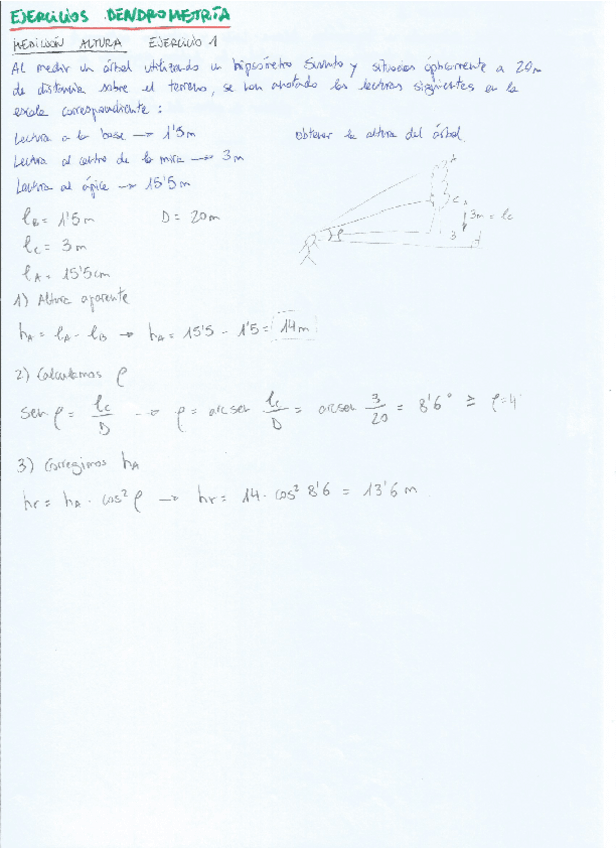 EJERCICIOS DENDROMETRÍA
MEDICIÓN ALTURA EJERCICIO 1
Al medir un árbol utilizando un hipsómetro Suunto y situados ópticamente a 20m
de distancia sobre el terreno, se han anotado las lecturas siguientes en la
escala correspondiente:
Lectura a la base → 1'5m
Obtener la altura del árbol.
Lectura al centro de la mira → 3m
Lectura al ápice → 15'5m
A
C
3m = lc
B
ρ
l_B = 1'5m D = 20m
l_C = 3m
l_A = 15'5cm
1) Altura aparente
h_A = l_A - l_B → h_A = 15'5 - 1'5 = 14m
2) Calculamos ρ
sen ρ = l_C/D → ρ = arcsen l_C/D = arcsen 3/20 = 8'6° ≥ ρ=4
3) Corregimos h_A
hr = h_A · cos² ρ → hr = 14 · cos² 8'6 = 13'6 m